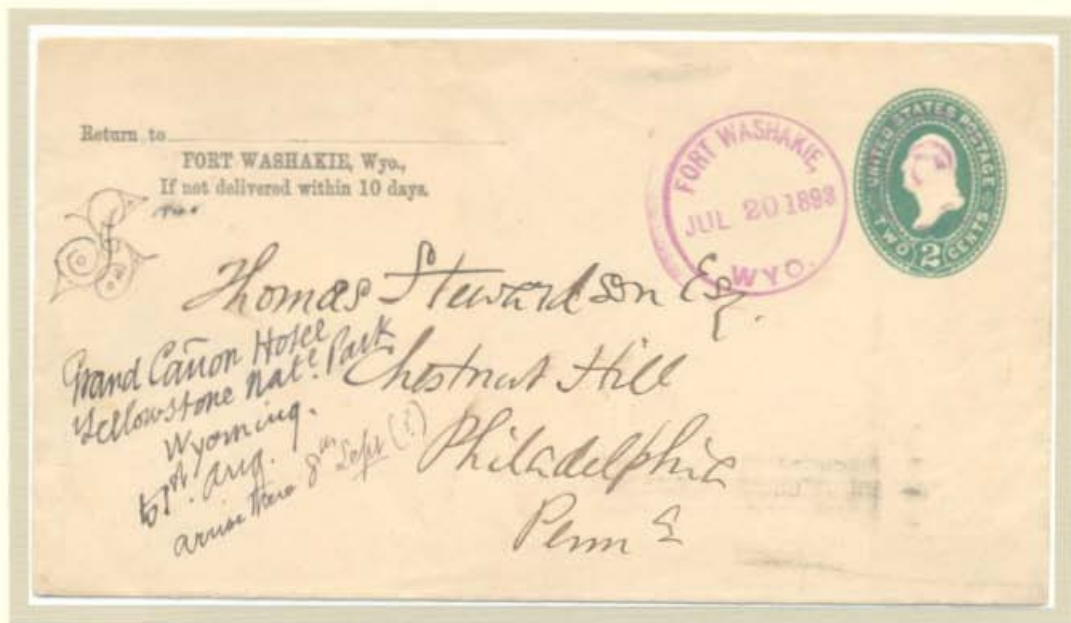 Return to
FORT WASHAKIE, Wyo.,
If not delivered within 10 days.
FORT WASHAKIE,
JUL 20 1893
WYO.
UNITED STATES POSTAGE
TWO 2 CENTS
Thomas Stewardson Esq.
Chestnut Hill
Philadelphia
Penn
Grand Cañon Hotel
Yellowstone Natl. Park
Wyoming.
to 1st. Aug.
arrive there 8th Sept (?)